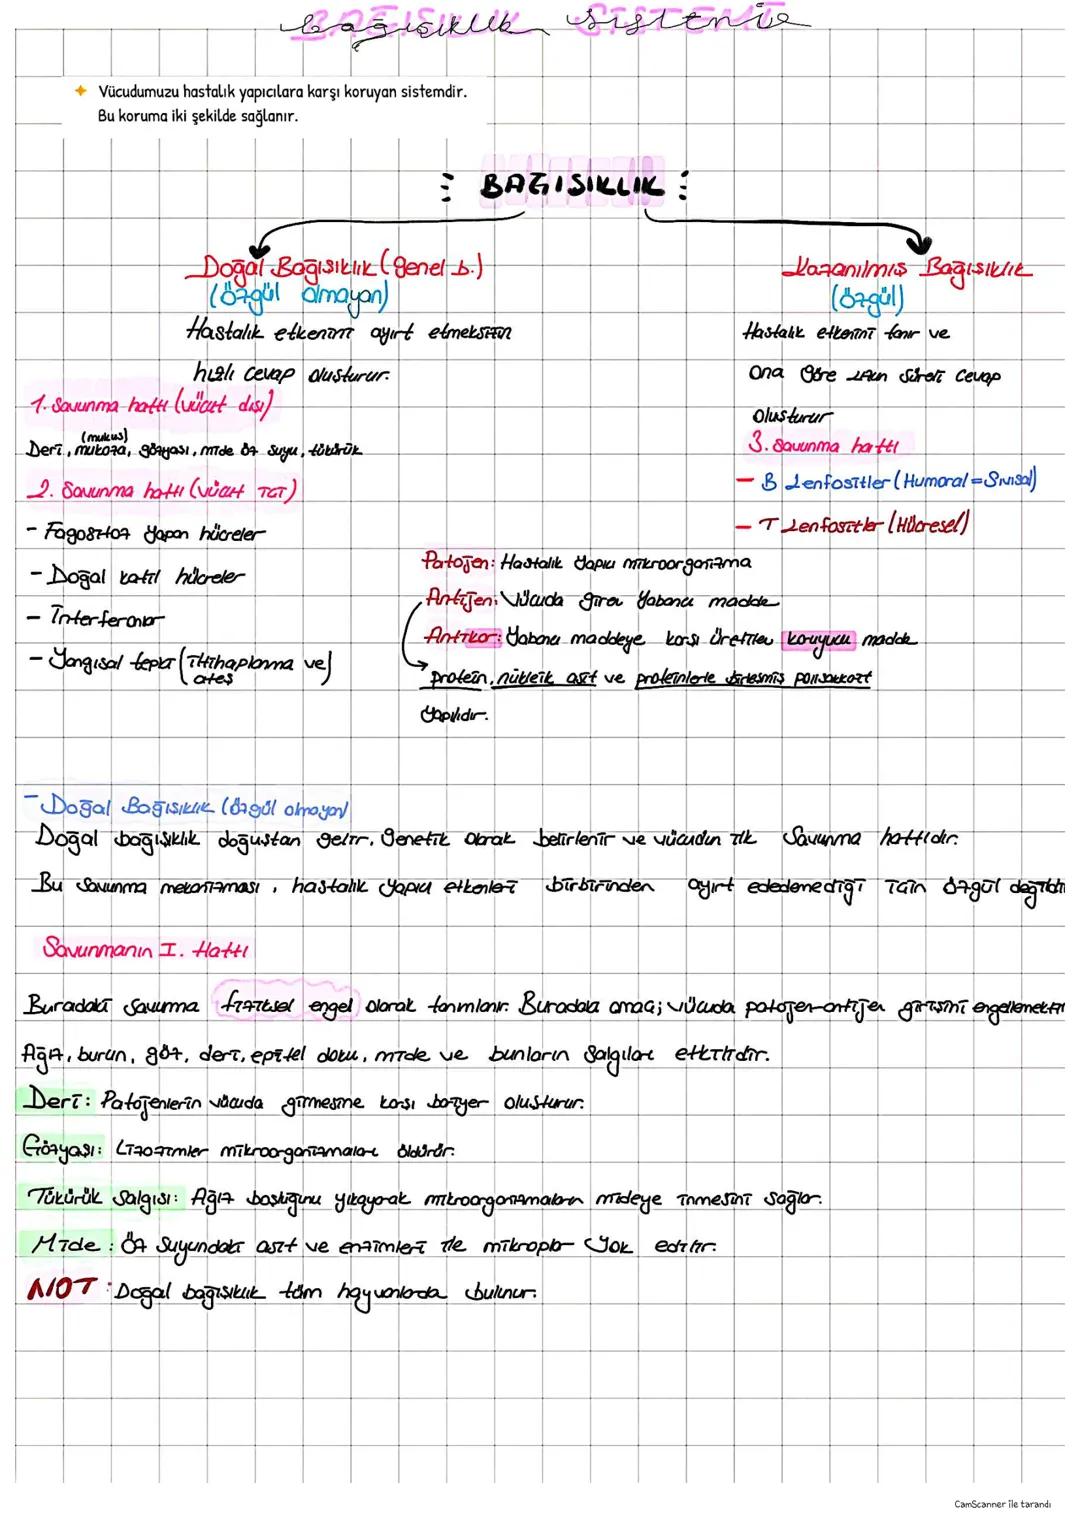 Bağışıklık Sistemi
Vücudumuzu hastalık yapıcılara karşı koruyan sistemdir.
Bu koruma iki şekilde sağlanır.
BAĞIŞIKLIK
Doğal Bağışıklık (genel b.)
(özgül olmayan)
Hastalık etkenini ayırt etmeksizin
hızlı cevap oluşturur.
Kazanılmış Bağışıklık
(özgül)
Hastalık etkenini tanır ve
ona göre uzun süreli cevap
oluşturur
1. Savunma hattı (vücut dışı)
(mukus)
Deri, mukoza, gözyaşı, mide öz suyu, tükürük
2. Savunma hattı (vücut içi)
- Fagositoz yapan hücreler
- Doğal katil hücreler
- İnterferonlar
- Yangısal tepki (İltihaplanma ve
ateş)
3. Savunma hattı
- B Lenfositler (Humoral = Sıvısal)
- T Lenfositler (Hücresel)
Patojen: Hastalık yapıcı mikroorganizma
Antijen: Vücuda giren yabancı madde
Antikor: Yabancı maddeye karşı üretilen koruyucu madde
protein, nükleik asit ve proteinlerle birleşmiş polisakkarit
yapılıdır.
- Doğal Bağışıklık (özgül olmayan)
Doğal bağışıklık doğuştan gelir. Genetik olarak belirlenir ve vücudun ilk savunma hattıdır.
Bu savunma mekanizması, hastalık yapıcı etkenleri birbirinden ayırt ededemediği için özgül değildir
Savunmanın I. Hattı
Buradaki savunma fiziksel engel olarak tanımlanır. Buradaki amaç; vücuda patojen-antijen girişini engellemektir
Ağız, burun, göz, deri, epitel doku, mide ve bunların salgıları etkilidir.
Deri: Patojenlerin vücuda girmesine karşı bariyer oluşturur.
Gözyaşı: Lizozimler mikroorganizmaları öldürür.
Tükürük Salgısı: Ağız boşluğunu yıkayarak mikroorganizmaların mideye inmesini sağlar.
Mide: Öz suyundaki asit ve enzimleri ile mikroplar yok edilir.
NOT: Doğal bağışıklık tüm hayvanlarda bulunur.
CamScanner ile tarandı